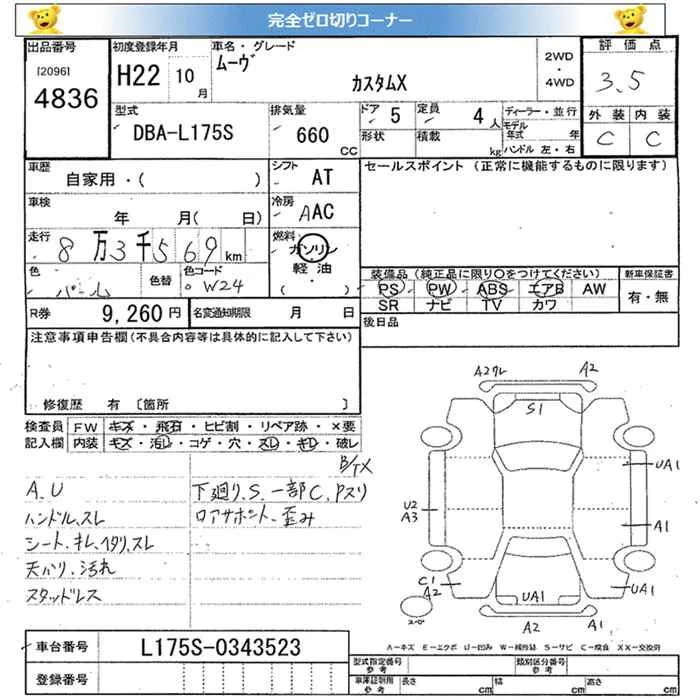 完全ゼロ切りコーナー
出品番号
[2096]
4836
初度登録年月
H22 10 月
車名・グレード
ムーヴ
カスタムX
2WD
・
4WD
評価点
3.5
外装 内装
C C
型式
DBA-L175S
排気量
660 CC
ドア 5
形状
定員 4 人
積載 kg
ディーラー・並行
モデル年式 年
ハンドル 左・右
車歴
自家用・( )
シフト
AT
セールスポイント (正常に機能するものに限ります)
車検
年 月( 日)
冷房
AAC
走行
8万3千569km
燃料
ガソリン
軽油
( ・ )
色
パール
色替
色コード
W24
装備品(純正品に限り○をつけてください)
PS PW ABS エアB AW
SR ナビ TV カワ
新車保証書
有・無
R券 9,260円
名変通知期限 月 日
後日品
注意事項申告欄(不具合内容等は具体的に記入して下さい)
修復歴 有 〔箇所 〕
検査員記入欄
FW キズ・飛石・ヒビ割・リペア跡・×要
内装 キズ・汚レ・コゲ・穴・スレ・キレ・破レ
B/TX
A.U
ハンドル.スレ
シート.キレ.ヘタリ.スレ
天バリ.汚れ
スタッドレス
下廻り.S.一部C.Pスリ
ロアサポート.歪み
A2ワレ A2
S1
UA1
U2
A3
A1
C1
A2
UA1
UA1
スペア
A2 A1
A=キズ E=エクボ U=凹み W=補修跡 S=サビ C=腐食 XX=交換済
車台番号 L175S-0343523
登録番号
型式指定番号
参考
類別区分番号
参考
車庫証明用
参考
長さ cm 幅 cm 高さ cm